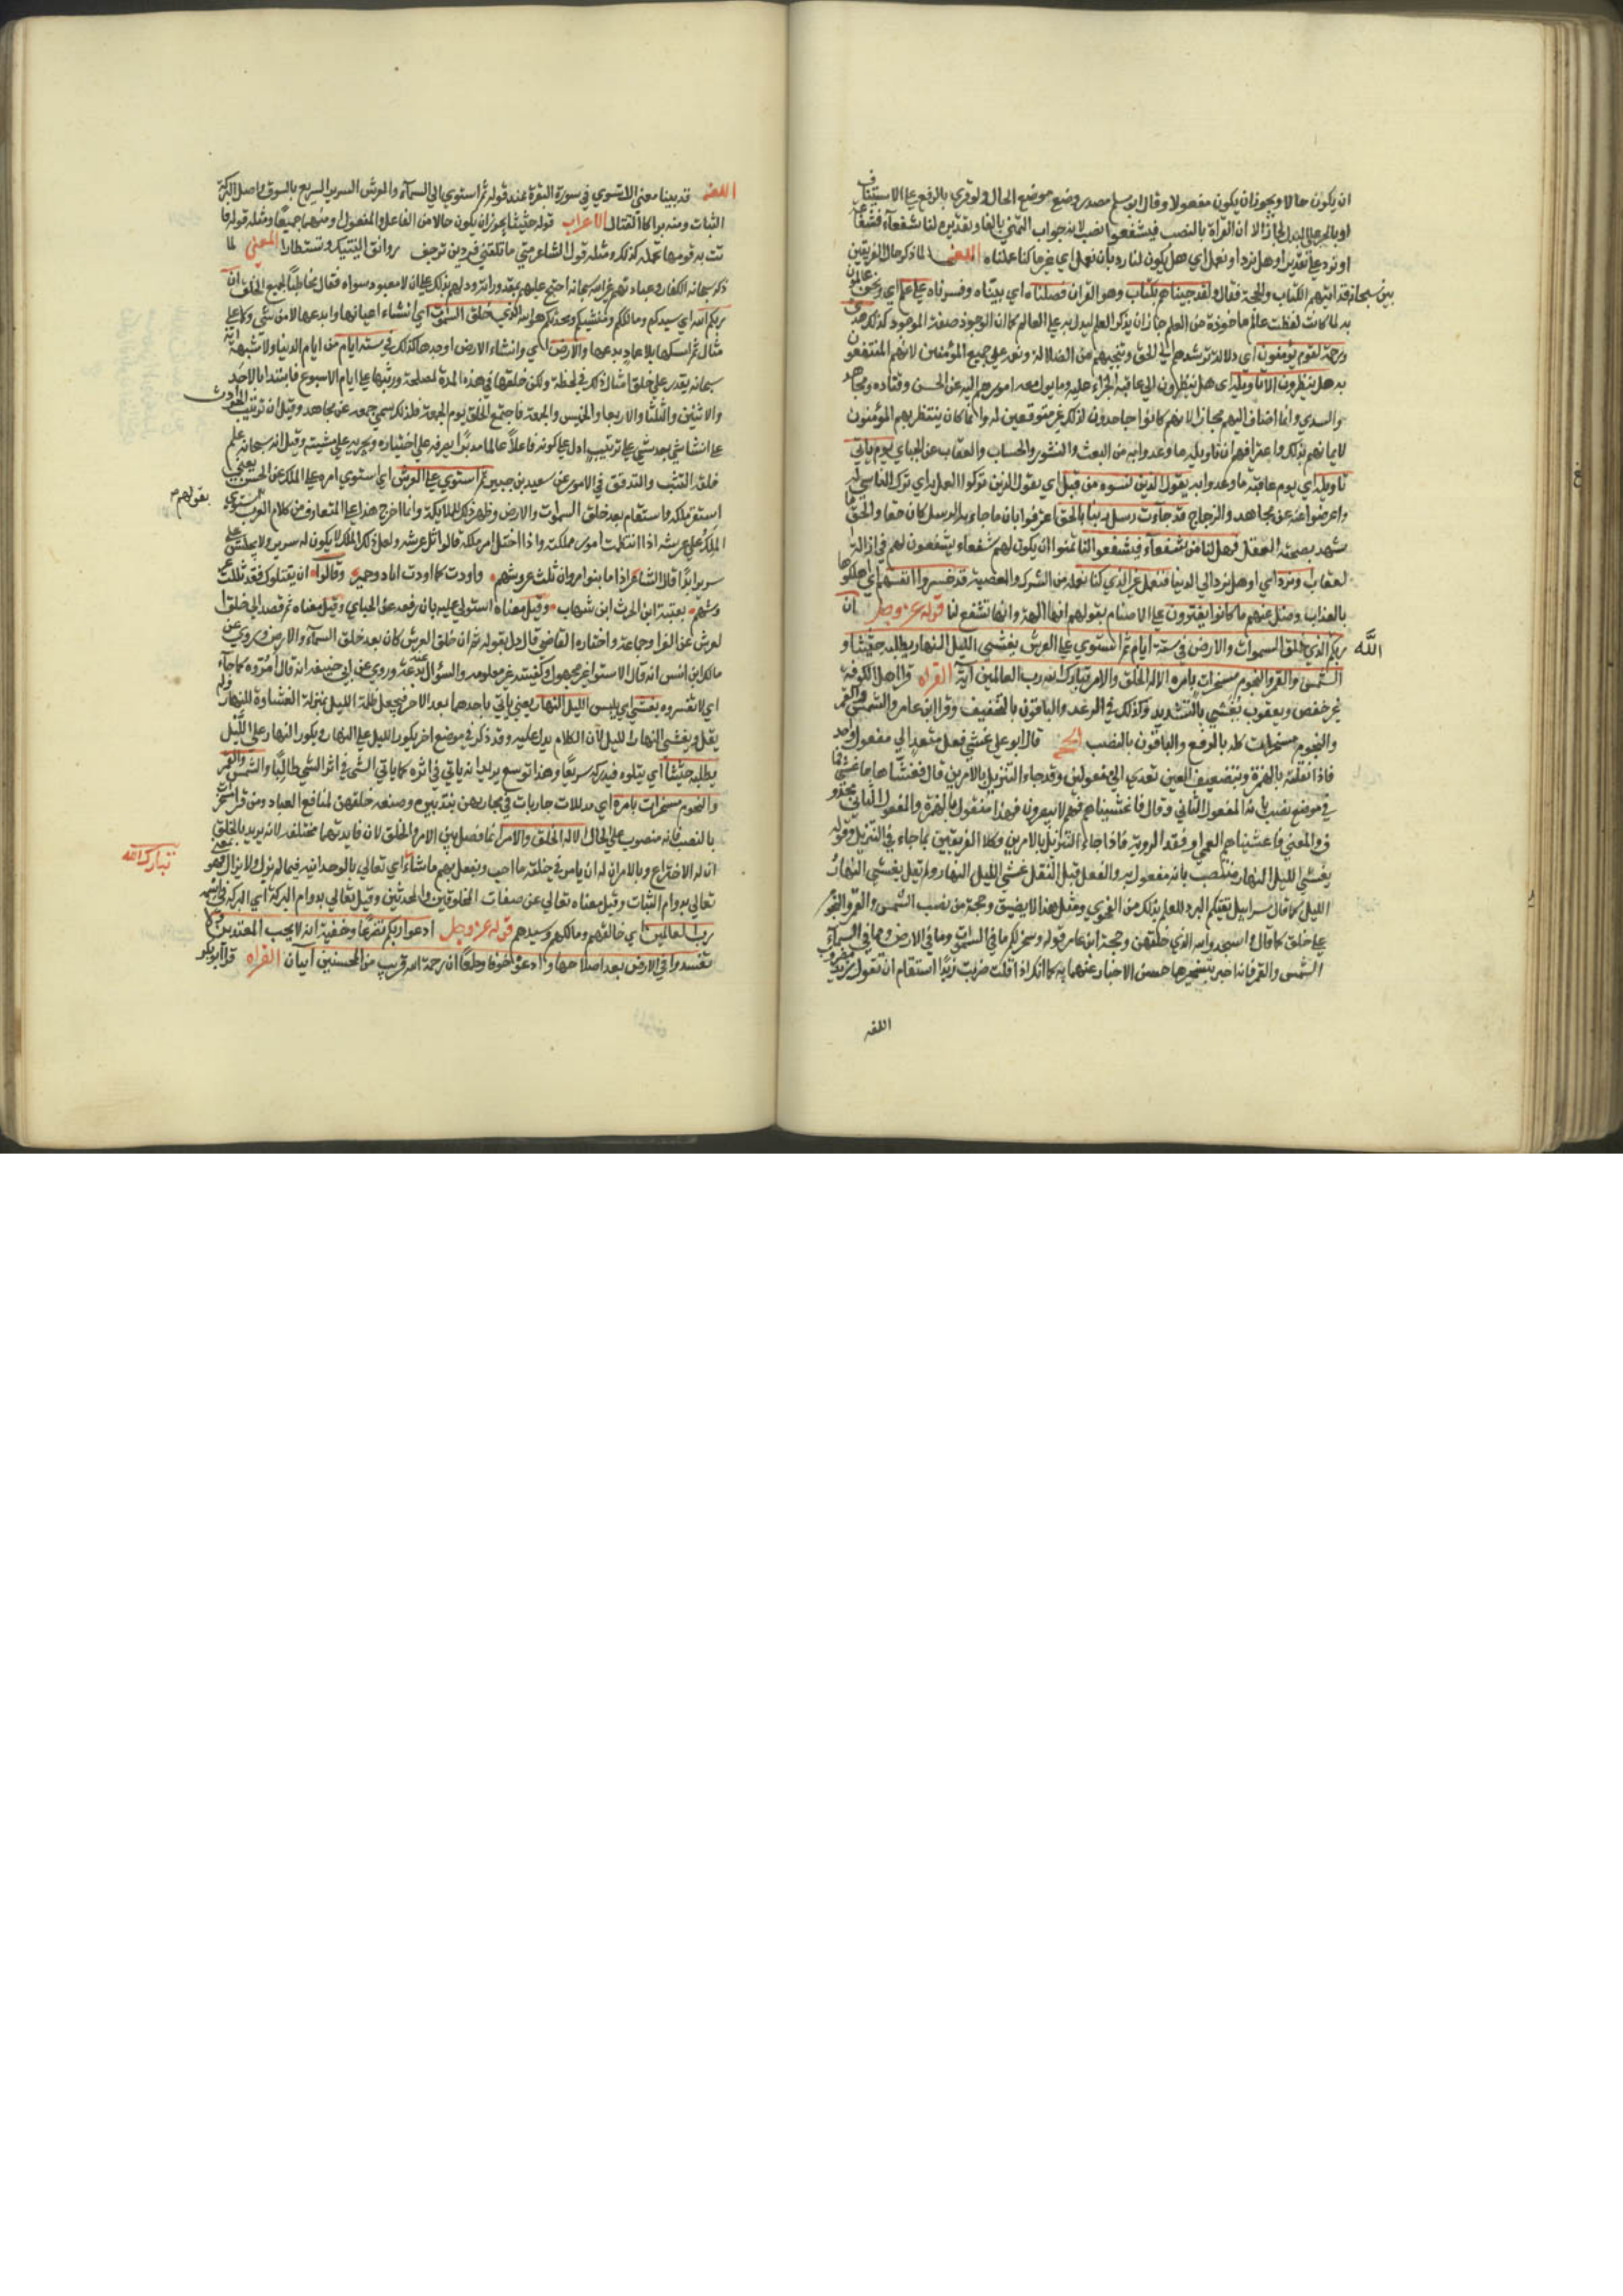 ان يكون حالا ويجوز ان يكون مفعولا وقال ابو مسلم مصدر وضع موضع الحال ولو قري بالرفع علي الاستيناف
او بالجر علي البدل لجاز الا ان القراة بالنصب فيشفعوا نصب لانه جواب التمني بالفا وتقديره لنا شفعآء فشفعا
او نرد علي تقدير او هل نرد او نعمل اي هل يكون لنا رد بان نعمل اي غير ما كنا عملناه المعني لما ذكر حال الفريقين
بين سبحانه قد اتيهم الكتاب والحجة فقال ولقد جيناهم بكتاب وهو القران فصلناه اي بيناه وفسرناه علي علم اي ونحن عالمون
به لما كانت لفظت عالم ماخوذة من العلم جاز ان يذكر العلم ليدل به علي العالم كما ان الوجود صفة الموجود كذلك هدي
ورحمة لقوم يؤمنون اي دلالة ترشدهم الي الحق وتنجيهم من الضلالة ونعمة علي جميع المؤمنين لانهم المنتفعون
به هل ينظرون الا تاويله اي هل ينظرون الي عاقبة الجزاء عليه وما يول مغبه امورهم اليه عن الحسن وقتاده ومجاهد
والسدي وانما اضاف اليهم مجازا لانهم كانوا جاحدون لذلك غير متوقعين له وانما كان ينتظر بهم المؤمنون
لايمانهم بذلك واعترافهم ان تاويله ما وعدوا به من البعث والنشور والحساب والعقاب عن الجباي يوم ياتي
تاويله اي يوم عاقبة ما وعدوا به يقول الذين نسوه من قبل اي يقول الذين تركوا العمل به اي ترك الناسي له
واعرضوا عنه عن مجاهد والزجاج قد جآءت رسل ربنا بالحق اعترفوا بان ما جاء به الرسل كان حقا والحق ما
شهد بصحته العقل فهل لنا من شفعآء فيشفعوا لنا تمنوا ان يكون لهم شفعاء يشفعون لهم في ازالة
لعقاب ونرد اي او هل نرد الي الدنيا فنعمل غير الذي كنا نعمله من الشرك والمعصية قد خسروا انفسهم اي اهلكوها
بالعذاب وضل عنهم ما كانوا يفترون علي الاصنام بقولهم انها الهة وانها تشفع لنا قوله عز وجل ان
ربكم الله الذي خلق السموات والارض في ستة ايام ثم استوي علي العرش يغشي الليل النهار يطلبه حثيثا و
الشمس والقمر والنجوم مسخرات بامره الا له الخلق والامر تبارك الله رب العالمين آية القراه قرا اهل الكوفة
غير حفص ويعقوب يغشي بالتشديد وكذلك في الرعد والباقون بالتخفيف وقرا ابن عامر والشمس والقمر
والنجوم مسخرات كله بالرفع والباقون بالنصب الحجة قال ابو علي غشي فعل متعد الي مفعول واحد
فاذا نقلته بالهمزة وبتضعيف العين تعدي الي مفعولين وقد جاء التنزيل بالامرين قال فغشاها ما غشي فما
في موضع نصب بانه المفعول الثاني وقال فاغشيناهم فهم لا يبصرون فهذا منقول بالهمزة والمفعول الثاني محذو
ف والمعني فاغشيناهم العمي او فقد الروية فاذا جاء التنزيل بالامرين فكلا الفريقين بما جاء في التنزيل وقوله
يغشي الليل النهار منتصب بانه مفعول به والفعل قبل النقل غشي الليل النهار ولم يقل يغشي النهار
الليل كما قال سرابيل تقيكم البرد للعلم بذلك من الفحوي ومثل هذا لا يضيق وحجة من نصب الشمس والقمر والنجو
علي خلق كما قال واسجدوا لله الذي خلقهن وحجة ابن عامر قوله وسخر لكم ما في السموات وما في الارض ومما في السمآء
الشمس والقمر فاذا اخبر بتسخيرها حسن الاخبار عنها به كما انك اذا قلت ضربت زيدا استقام ان تقول زيد مضروب
اللغه
اللغه قد بينا معني الاستوي في سورة البقرة عند قوله ثم استوي الي السمآء والعرش السرير السريع بالسوق واصل البركة
الثبات ومنه براكا القتال الاعراب قوله حثيثا يجوز ان يكون حالا من الفاعل والمفعول او منهما جميعا ومثله قوله فا
تت به قومها تحمله كذلك ومثله قول الشاعر متي ما تلقني فردين ترجف روانق اليتيك وتستطارا المعني لما
ذكر سبحانه الكفار وعبادتهم غير الله سبحانه احتج عليهم بمقدوراته ودلهم بذلك علي ان لا معبود سواه فقال مخاطبا لجميع الخلق ان
ربكم الله اي سيدكم ومالككم ومنشيكم ومحدثكم هو الله الذي خلق السموات اي انشاء اعيانها وابدعها لا من شي ولا علي
مثال ثم امسكها بلا عماد يدعمها والارض اي وانشاء الارض اوجدها كذلك في ستة ايام من ايام الدنيا ولا شبهة انه
سبحانه يقدر علي خلق امثال ذلك في لحظة ولكن خلقها في هذه المدة لمصلحة ورتبها علي ايام الاسبوع فابتدا بالاحد
والاثنين والثلثا والاربعا والخميس والجمعة فاجتمع الخلق يوم الجمعة فلذلك سمي جمعه عن مجاهد وقيل ان ترتيب الحوادث
علي انشا شي بعد شي علي ترتيب ادل علي كونه فاعلا عالما مدبرا يصرفه علي اختياره ويجريه علي مشيته وقيل انه سبحانه علم
خلقه التثبت والتدقق في الامور عن سعيد بن جبير ثم استوي علي العرش اي استوي امره علي الملك عن الحسن يعني
استقر ملكه واستقام بعد خلق السموات والارض وظهر ذلك للملايكة وانما اخرج هذا علي المتعارف من كلام العرب بقولهم استوي
الملك علي عرشه اذا انتظمت امور مملكته واذا اختل امر ملكه قالوا ثل عرشه ولعل ذلك الملك لا يكون له سرير ولا يجلس علي
سرير ابدا قال الشاعر اذا ما بنوا مروان ثلت عروشهم واودت كما اودت اياد وحمير وقالوا ان يقتلوك فقد ثللت عر
وشهم بعتيبة ابن الحرث ابن شهاب وقيل معناه استولي عليه بان رفعه عن الجباي وقيل معناه ثم قصد الي خلق ا
لعرش عن الفرا وجماعة واختاره القاضي قال دل بقوله ثم ان خلق العرش كان بعد خلق السمآء والارض وروي عن
مالك ابن انس انه قال الاستواء غير مجهول وكيفيته غير معلومه والسؤال عنه بدعة وروي عن ابي حنيفه انه قال امروه كما جآء
اي لا تفسروه يغشي اي يلبس الليل النهار يعني ياتي باحدهما بعد الاخر فيجعل ظلمة الليل بمنزلة الغشاوة للنهار ولم
يقل ويغشي النهار الليل لان الكلام يدل عليه وقد ذكر في موضع اخر يكور الليل علي النهار ويكور النهار علي الليل
يطلبه حثيثا اي يتلوه فيدركه سريعا وهذا توسع يريد انه ياتي في اثره كما ياتي الشي في اثر الشي طالبا والشمس والقمر
والنجوم مسخرات بامره اي مدللات جاريات في مجاريهن بتدبيره وصنعه خلقهن لمنافع العباد ومن قرا مسخرات
بالنصب فانه منصوب علي الحال الا له الخلق والامر انما فصل بين الامر والخلق لان فايدتهما مختلفه لانه يريد بالخلق
ان له الاختراع وبالامر ان له ان يامر في خلقه ما احب ويفعل بهم ما شاء تبارك الله اي تعالي بالوحدانيه فيما لم يزل ولا يزال فهو بمعني
تعالي بدوام الثبات وقيل معناه تعالي عن صفات المخلوقين والمحدثين وقيل تعالي بدوام البركة اي البركة في اسمه
رب العالمين اي خالقهم ومالكهم وسيدهم قوله عز وجل ادعوا ربكم تضرعا وخفية انه لا يحب المعتدين ولا
تفسدوا في الارض بعد اصلاحها وادعوه خوفا وطمعا ان رحمة الله قريب من المحسنين آيتان القراه قرا ابو بكر